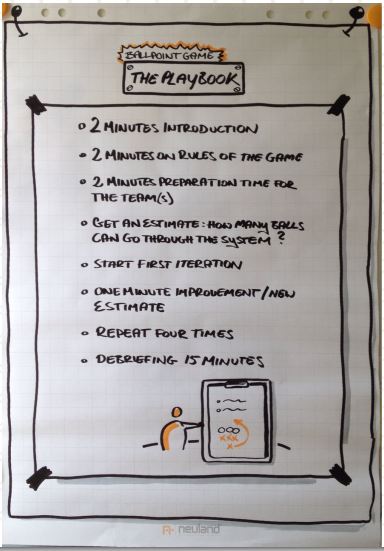 BALLPOINT GAME
THE PLAYBOOK
2 MINUTES INTRODUCTION
2 MINUTES ON RULES OF THE GAME
2 MINUTES PREPARATION TIME FOR
THE TEAM(S)
GET AN ESTIMATE: HOW MANY BALLS
CAN GO THROUGH THE SYSTEM?
START FIRST ITERATION
ONE MINUTE IMPROVEMENT/NEW
ESTIMATE
REPEAT FOUR TIMES
DEBRIEFING 15 MINUTES
neuland